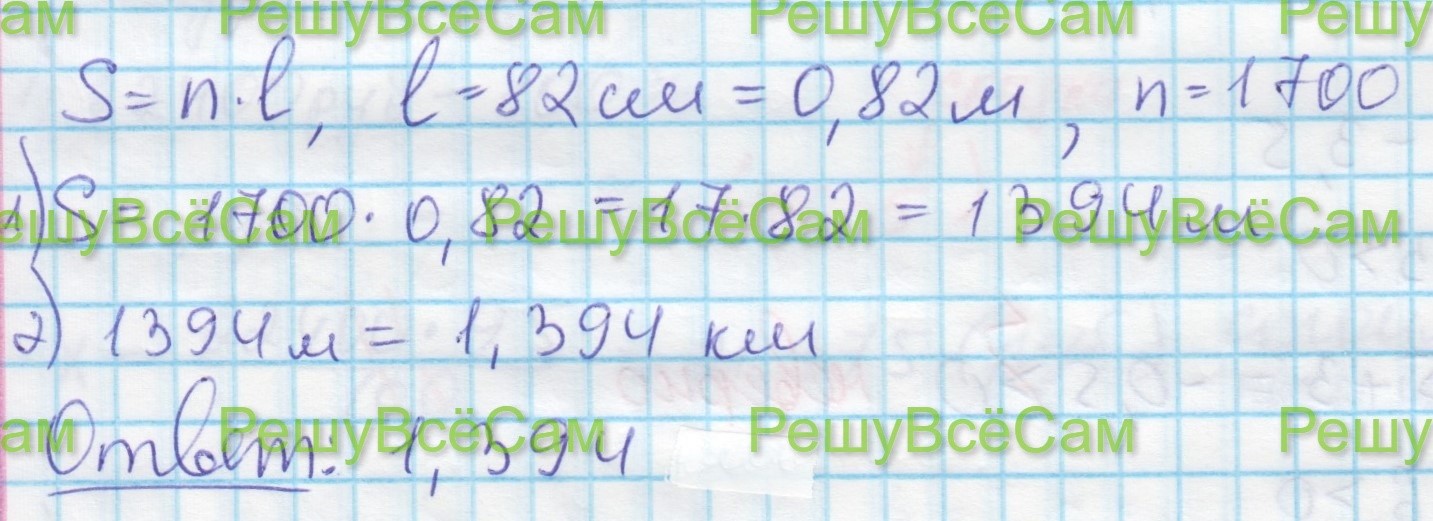 РешуВсёСам РешуВсёСам Решу
S = n·l, l = 82 см = 0,82 м, n = 1700
1) S = 1700 · 0,82 = 17·82 = 1394 м
РешуВсёСам РешуВсёСам РешуВсёСам
2) 1394 м = 1,394 км
ам РешуВсёСам РешуВсёСам Решу
Ответ: 1,394